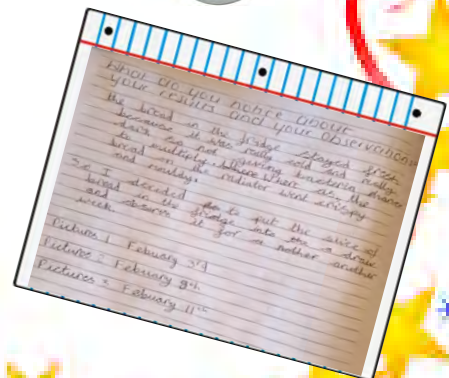 What do you notice about
your results and your observations
the bread in the fridge stayed fresh
because it was really cold and really
dark so not allowing bacteria
to multiply. Where as the
bread on the radiator went crispy
and mouldy.
So I decided to put the slice of
bread in the fridge into the a draw
and observe it for a nother another
week
Pictures 1 Febuary 3rd
Pictures 2 Febuary 9th
Pictures 3 Febuary 11th